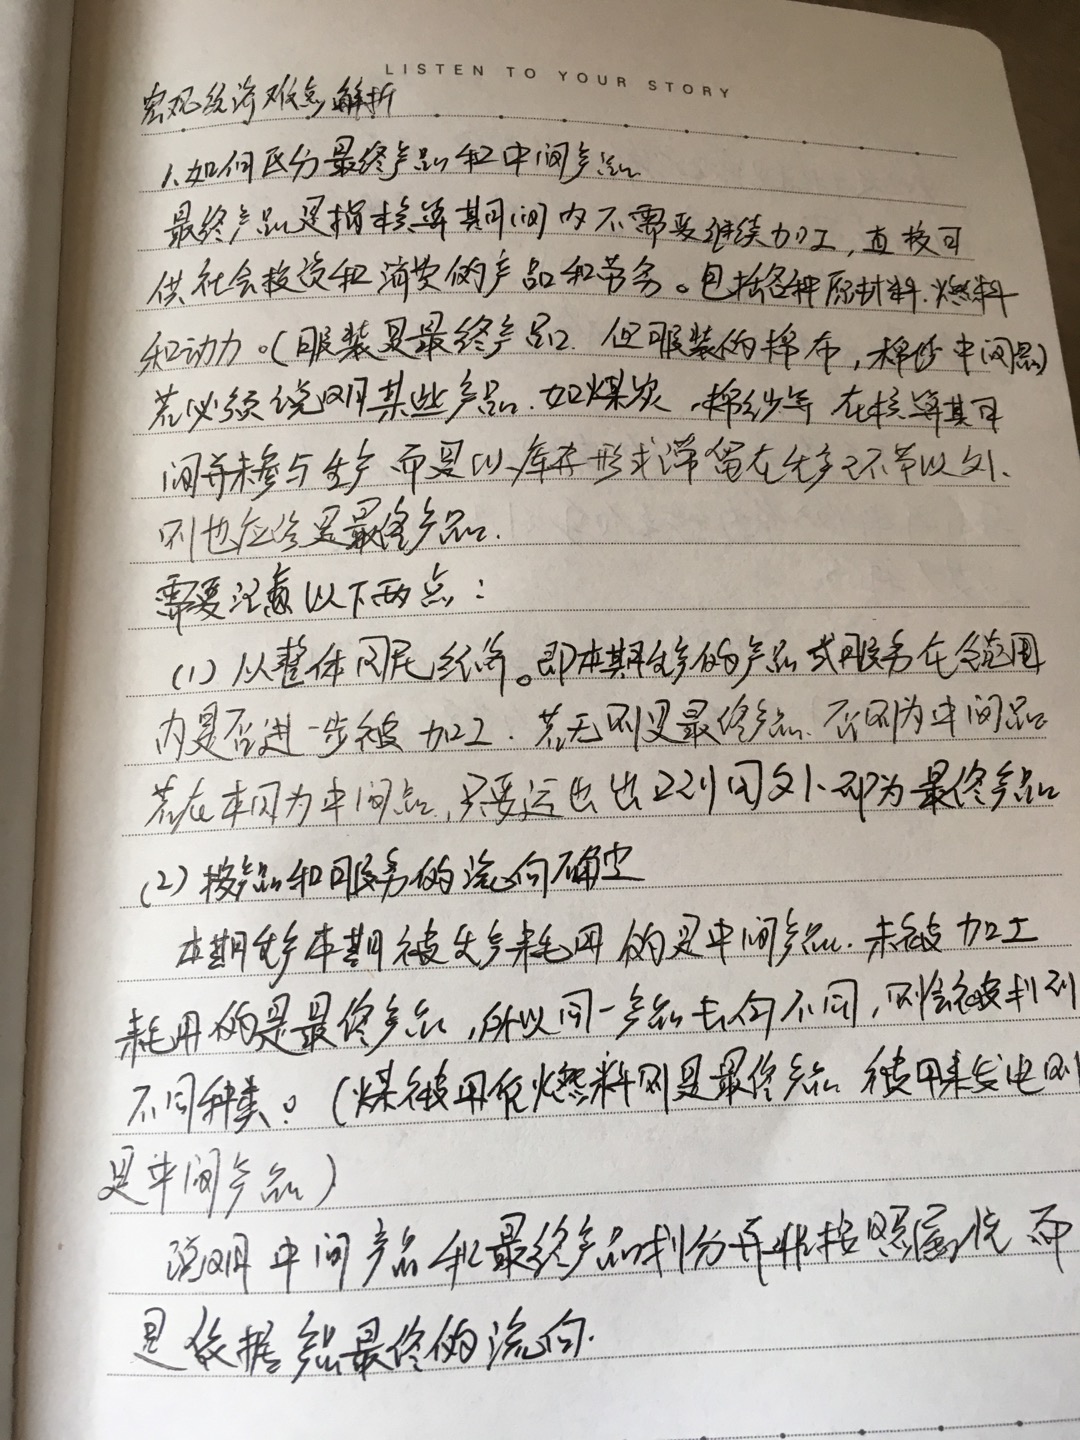 LISTEN TO YOUR STORY
宏观经济难点解析
1.如何区分最终产品和中间产品
最终产品是指核算期间内不需要继续加工,直接可
供社会投资和消费的产品和劳务。包括各种原材料.燃料
和动力。(服装是最终产品.但服装的棉布,棉纱中间品)
若必须说明某些产品.如煤炭,棉纱等在核算期
间并未参与生产而是以库存形式滞留在生产环节以外、
则也应该是最终产品.
需要注意以下两点:
(1)从整体国民经济。即本期生产的产品或服务在范围
内是否进一步被加工.若无则是最终产品.否则为中间品
若在本国为中间品,只要运出到国外、即为最终产品
(2)按产品和服务的流向确定
本期生产本期被生产耗用的是中间产品.未被加工
耗用的是最终产品,所以同一产品去向不同,则会被判到
不同种类。(煤被用作燃料则是最终产品 被用来发电则
是中间产品)
说明中间产品和最终产品划分并非按照属性而
是依据产品最终的流向.